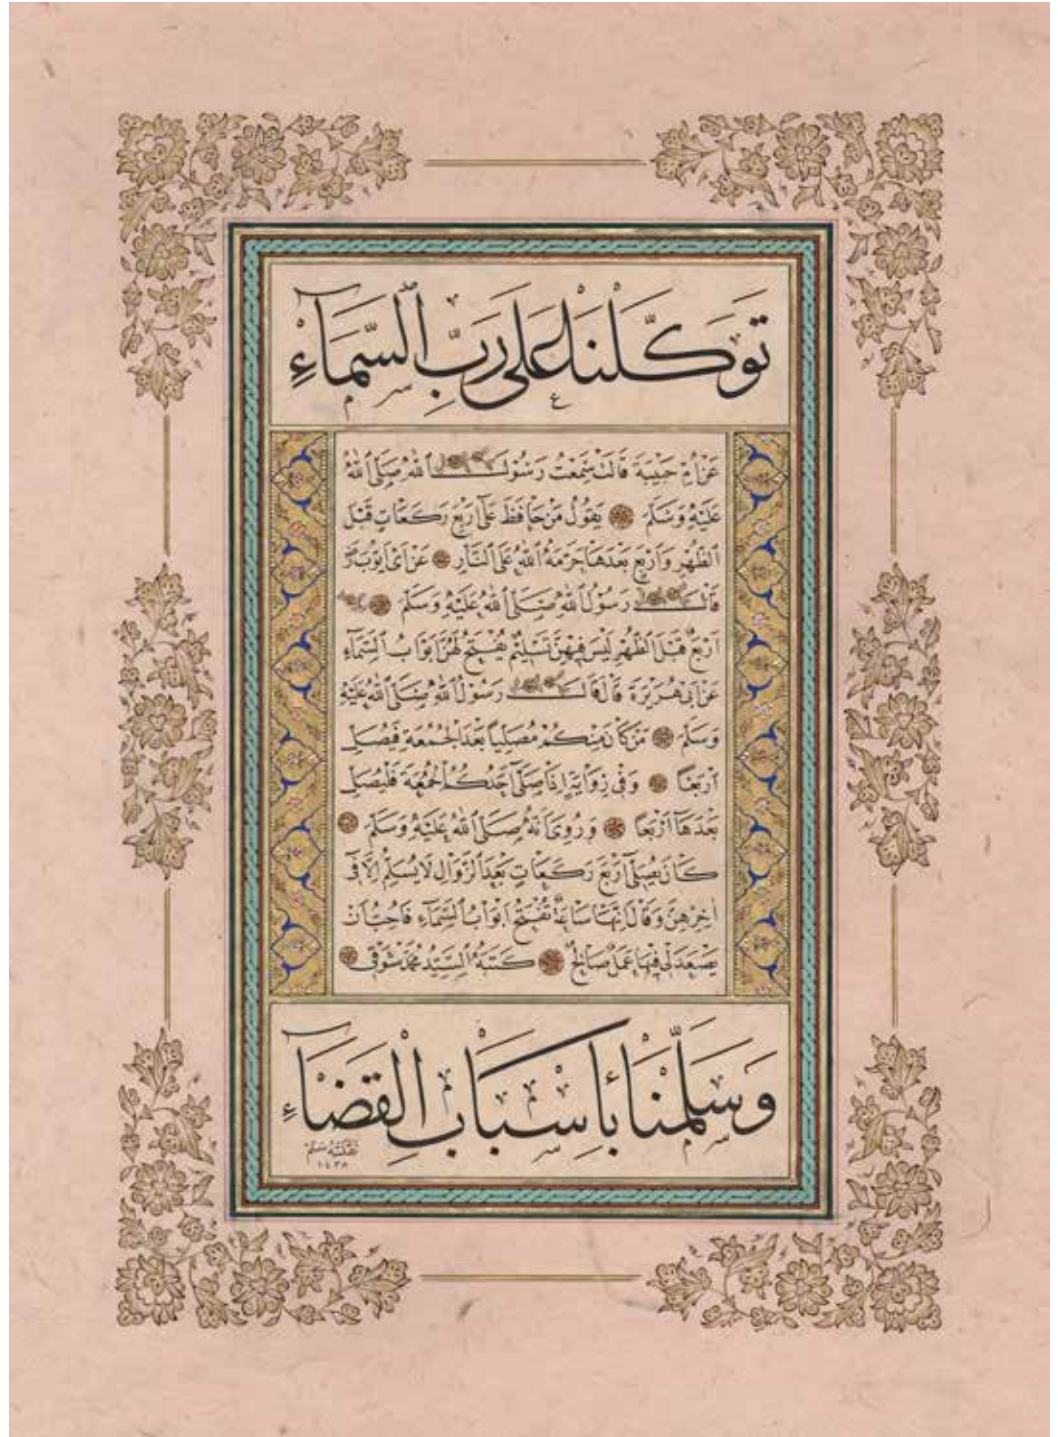 تَوَكَّلْنَا عَلَى رَبِّ السَّمَاءِ
عن ام حبيبة قالت سمعت رسول الله صلى الله
عليه وسلم يقول من حافظ على اربع ركعات قبل
الظهر واربع بعدها حرمه الله على النار عن ابى ايوب رضي
قال رسول الله صلى الله عليه وسلم
اربع قبل الظهر ليس فيهن تسليم تفتح لهن ابواب السماء
عن ابى هريرة قال قال رسول الله صلى الله عليه
وسلم من كان منكم مصليا بعد الجمعة فليصل
اربعا وفي رواية اذا صلى احدكم الجمعة فليصل
بعدها اربعا وروى انه صلى الله عليه وسلم
كان يصلى اربع ركعات بعد الزوال لا يسلم الا فى
اخرهن وقال انها ساعة تفتح ابواب السماء فاحب ان
يصعد لى فيها عمل صالح كتبه السيد محمد شوقي
وَسَلَّمْنَا بِأَسْبَابِ الْقَضَاءِ
نقله
١٤٣٨